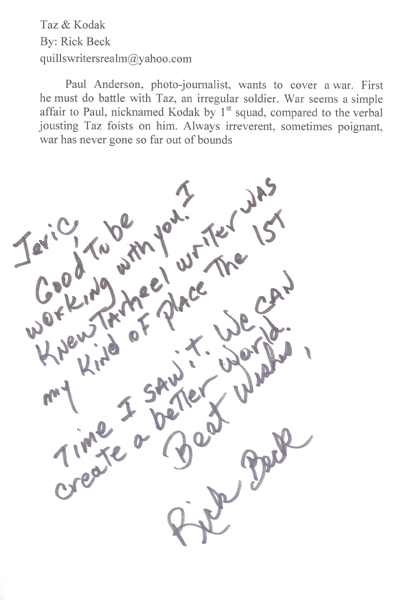 Taz & Kodak
By: Rick Beck
quillswritersrealm@yahoo.com
Paul Anderson, photo-journalist, wants to cover a war. First
he must do battle with Taz, an irregular soldier. War seems a simple
affair to Paul, nicknamed Kodak by 1st squad, compared to the verbal
jousting Taz foists on him. Always irreverent, sometimes poignant,
war has never gone so far out of bounds
Jeric,
Good To be
working with you. I
Knew Tarheel writer was
my Kind of Place The 1ST
Time I saw it. We CAN
create a better world.
Best Wishes,
Rick Beck